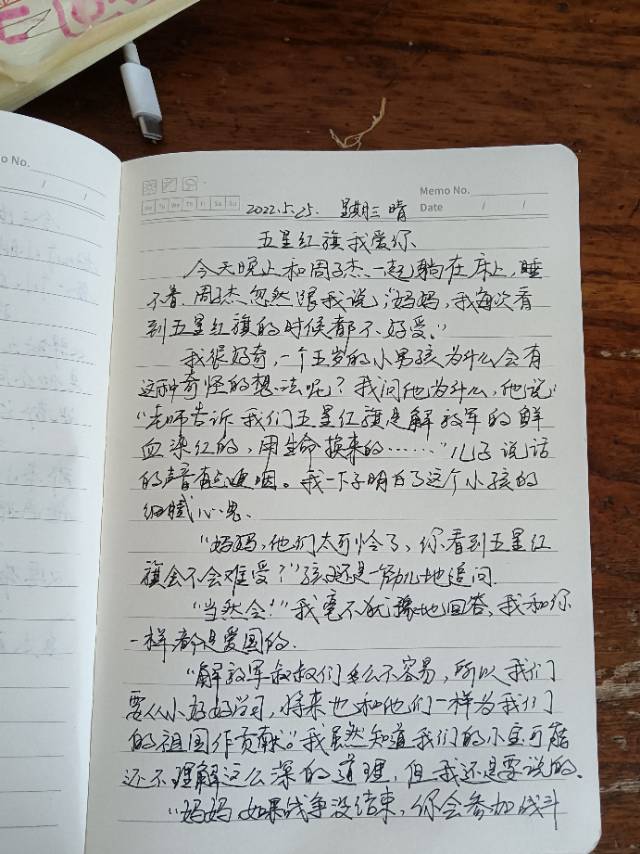 o No.
Memo No.
Mo Tu We Th Fr Sa Su
Date / /
2022.5.25. 星期三 晴
五星红旗我爱你
今天晚上和周子杰一起躺在床上,睡
不着,周子杰忽然跟我说:“妈妈,我每次看
到五星红旗的时候都不好受。”
我很好奇,一个五岁的小男孩为什么会有
这种奇怪的想法呢?我问他为什么,他说:
“老师告诉我们五星红旗是解放军的鲜
血染红的,用生命换来的……”儿子说话
的声音有点哽咽。我一下子明白了这个小孩的
细腻心思.
“妈妈,他们太可怜了,你看到五星红
旗会不会难受?”孩子还是一个劲儿地追问.
“当然会!”我毫不犹豫地回答,我和你
一样都是爱国的.
“解放军叔叔们多么不容易,所以我们
要从小好好学习,将来也和他们一样为我们
的祖国作贡献。”我虽然知道我们的小宝可能
还不理解这么深的道理,但我还是要说的.
“妈妈,如果战争没结束,你会参加战斗